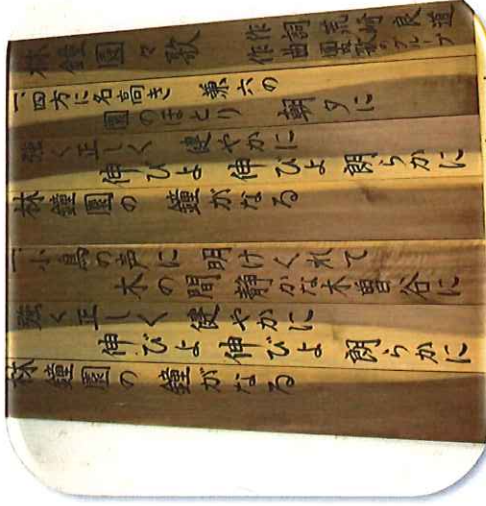 林鐘園々歌
作詞 荒崎良道
作曲 グループ
一、四方に名高き 兼六の
園のほとり 朝夕に
強く正しく 健やかに
伸びよ 伸びよ 朗らかに
林鐘園の 鐘がなる
二、小鳥の声に 明けくれて
木の間静かな木曽谷に
強く正しく 健やかに
伸びよ 伸びよ 朗らかに
林鐘園の 鐘がなる